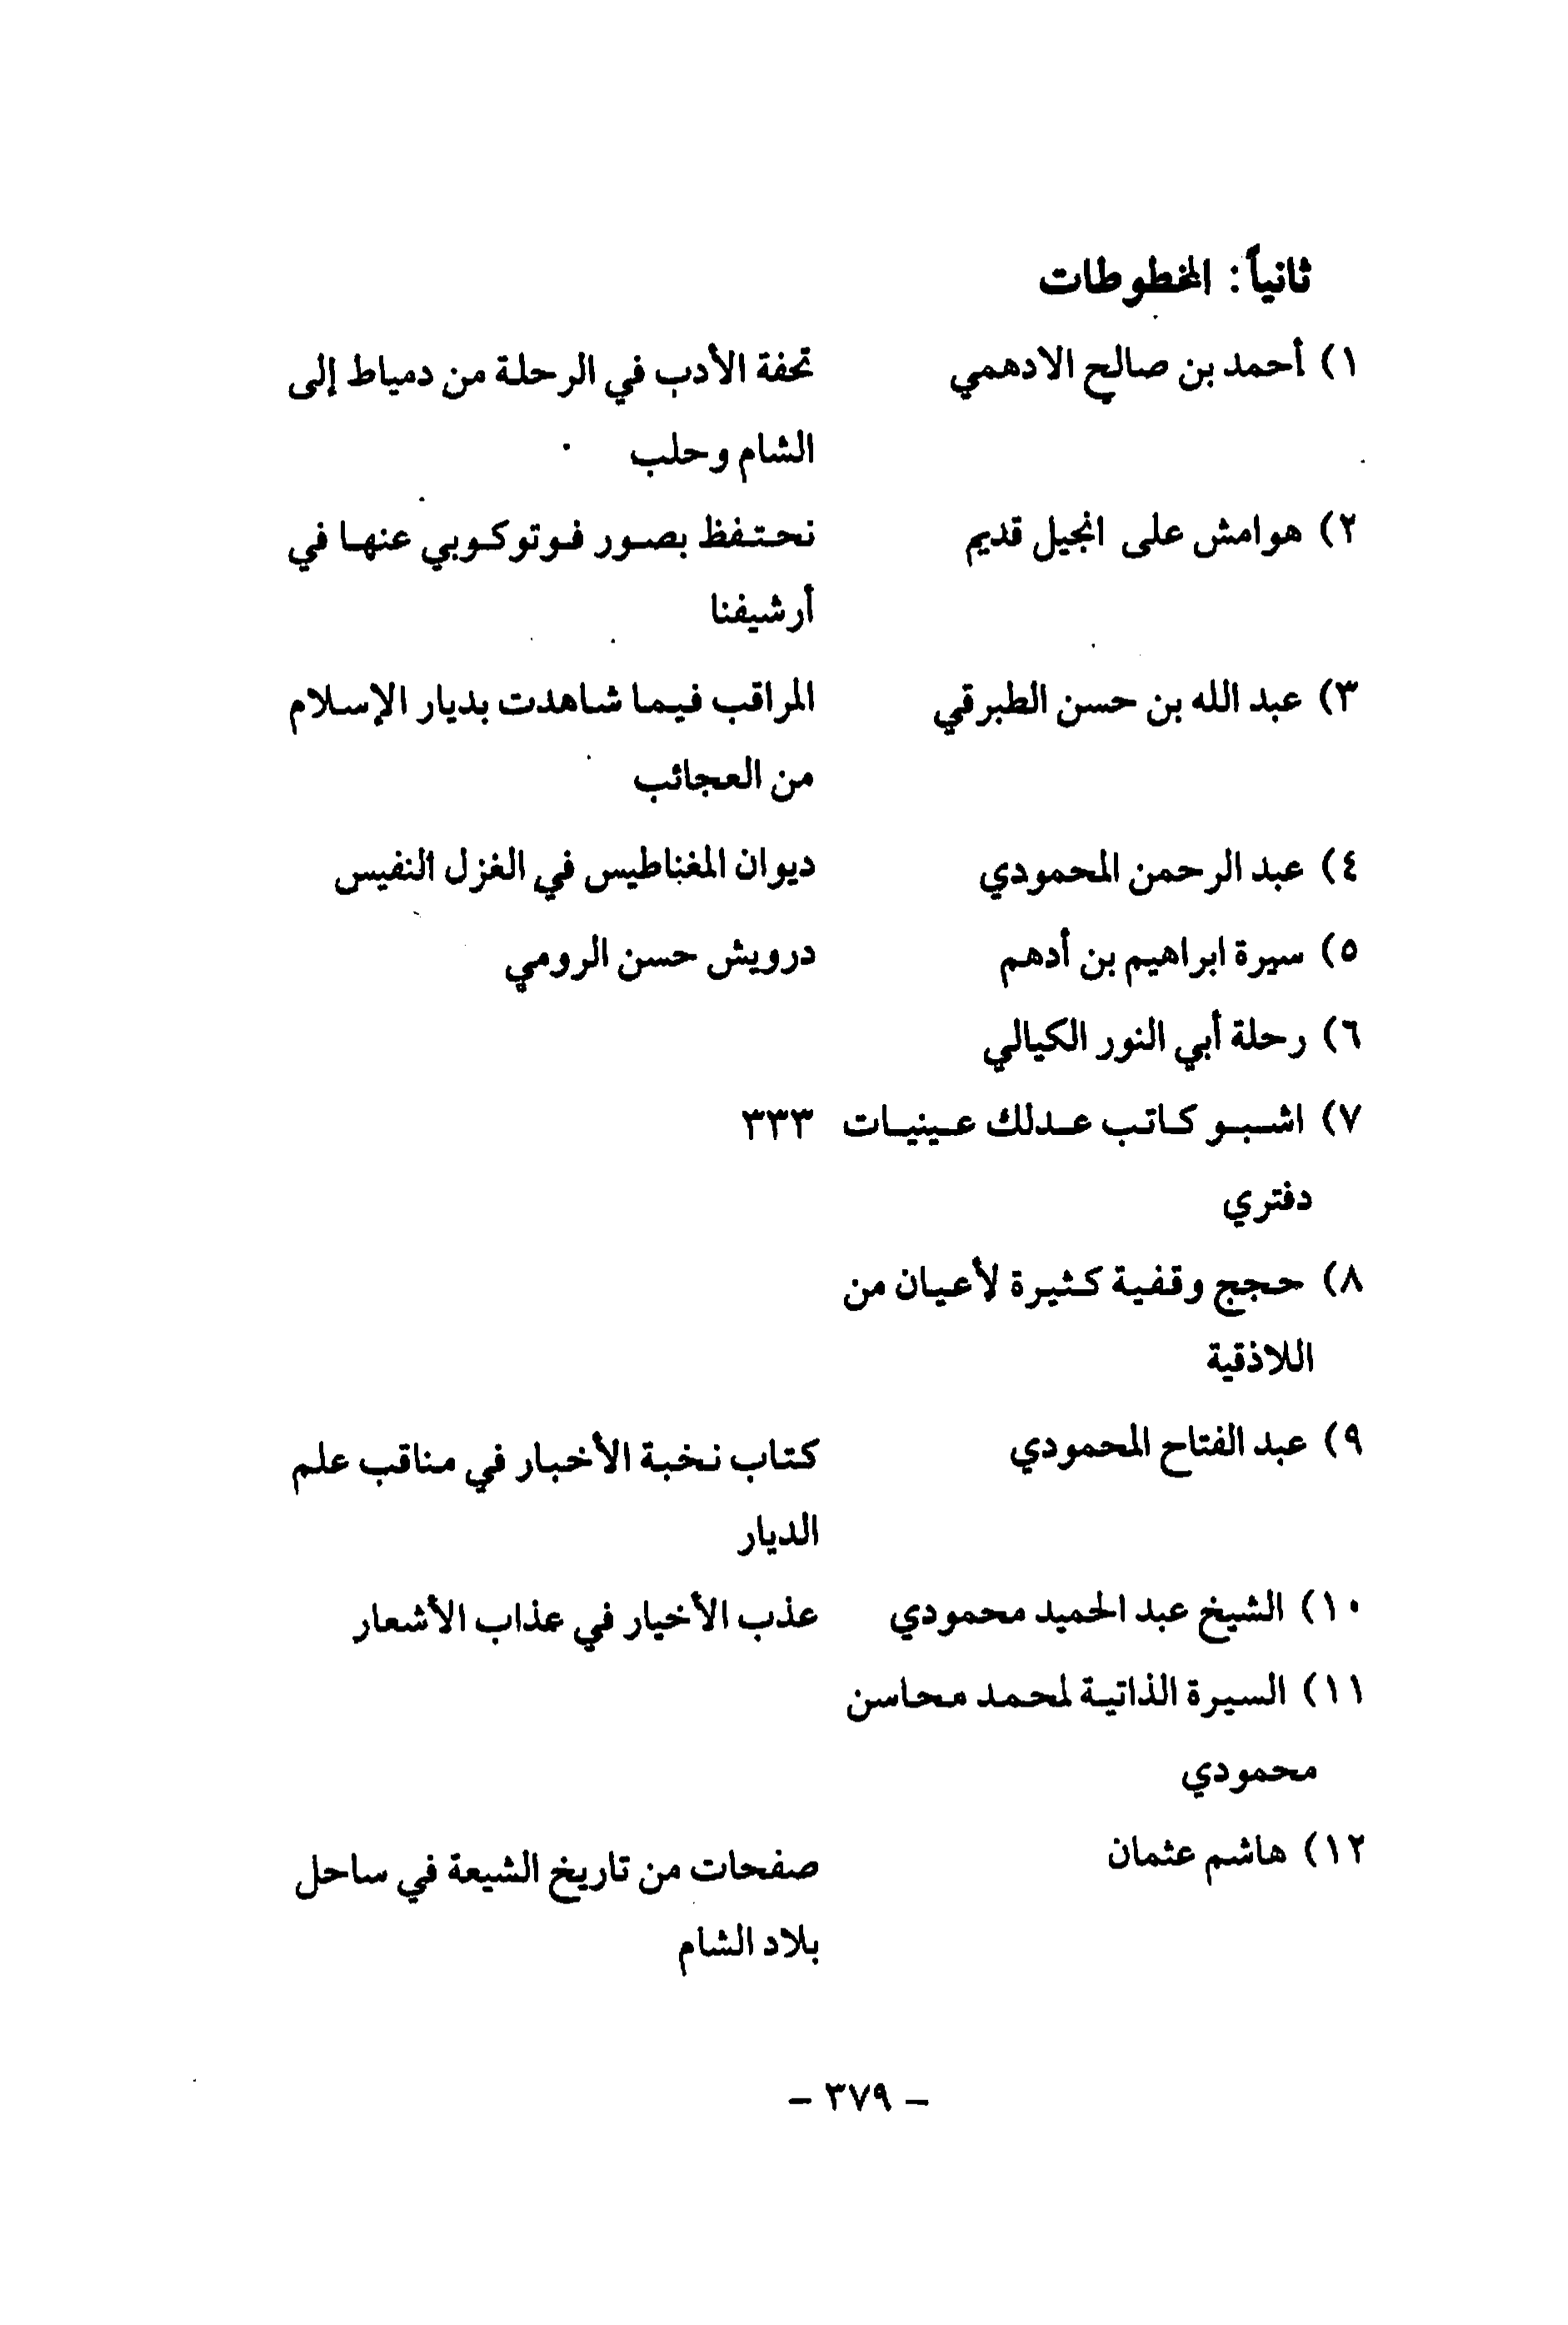 ثانياً: المخطوطات
١) أحمد بن صالح الادهمي تحفة الأدب في الرحلة من دمياط إلى
الشام وحلب
٢) هوامش على انجيل قديم نحتفظ بصور فوتوكوبي عنها في
أرشيفنا
٣) عبد الله بن حسن الطبرقي المراقب فيما شاهدت بديار الإسلام
من العجائب
٤) عبد الرحمن المحمودي ديوان المغناطيس في الغزل النفيس
٥) سيرة ابراهيم بن أدهم درويش حسن الرومي
٦) رحلة أبي النور الكيالي
٧) اشبو كاتب عدلك عينيات ٣٣٣
دفتري
٨) حجج وقفية كثيرة لأعيان من
اللاذقية
٩) عبد الفتاح المحمودي كتاب نخبة الأخبار في مناقب علم
الديار
١٠) الشيخ عبد الحميد محمودي عذب الأخيار في عذاب الأشعار
١١) السيرة الذاتية لمحمد محاسن
محمودي
١٢) هاشم عثمان صفحات من تاريخ الشيعة في ساحل
بلاد الشام
– ٣٧٩ –